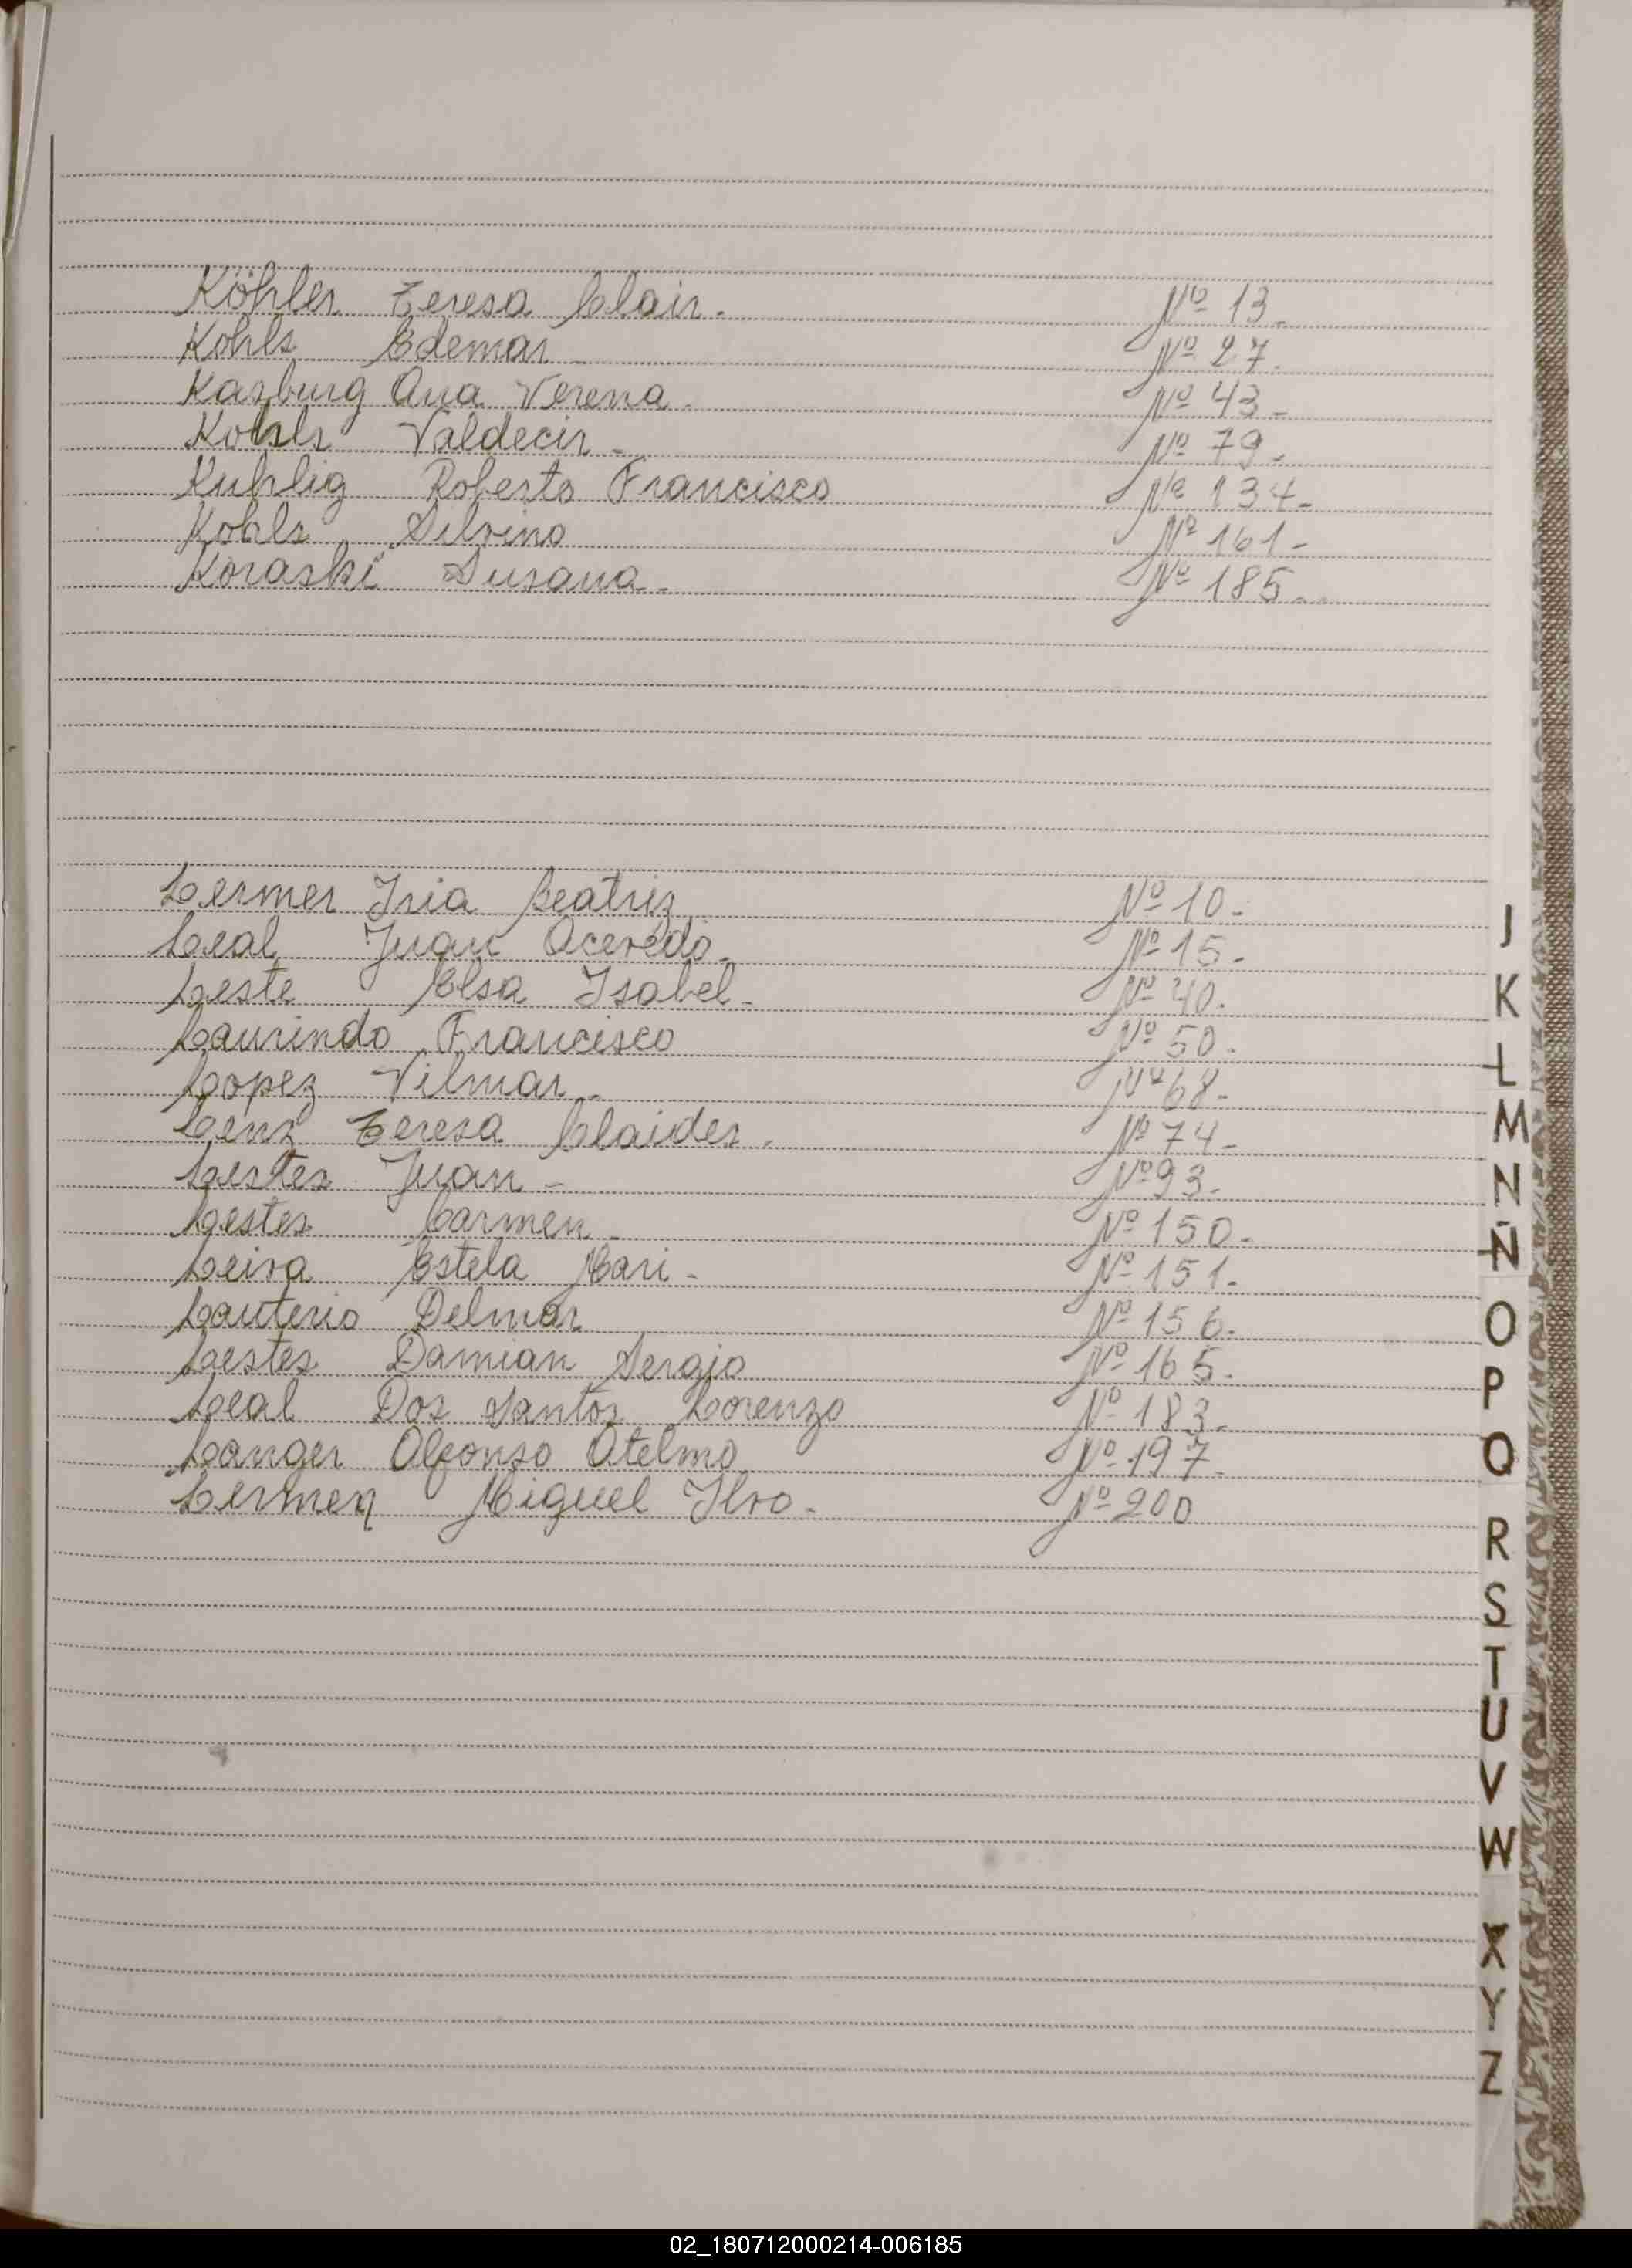 Köhler Teresa Clair. Nº 13.
Kohls Edemar Nº 27.
Kasburg Ana Verena. Nº 43.
Kohls Valdecir. Nº 79.
Kuhlig Roberto Francisco Nº 134.
Kohls Silvino Nº 161.
Koraski Susana. Nº 185.
Lermer Iria Beatriz Nº 10.
Leal Juan Acevedo. Nº 15.
Leste Elsa Isabel. Nº 40.
Laurindo Francisco Nº 50.
Lopez Vilmar. Nº 68.
Lenz Teresa Claides. Nº 74.
Lestes Juan. Nº 93.
Lestes Carmen. Nº 150.
Leiva Estela Mari. Nº 151.
Lauterio Delmar Nº 156.
Lestes Damian Sergio Nº 165.
Leal Dos Santos Lorenzo Nº 183.
Langer Alfonso Otelmo Nº 197.
Lermen Miguel Ilvo. Nº 200
J
K
L
M
N
Ñ
O
P
Q
R
S
T
U
V
W
X
Y
Z
02_180712000214-006185